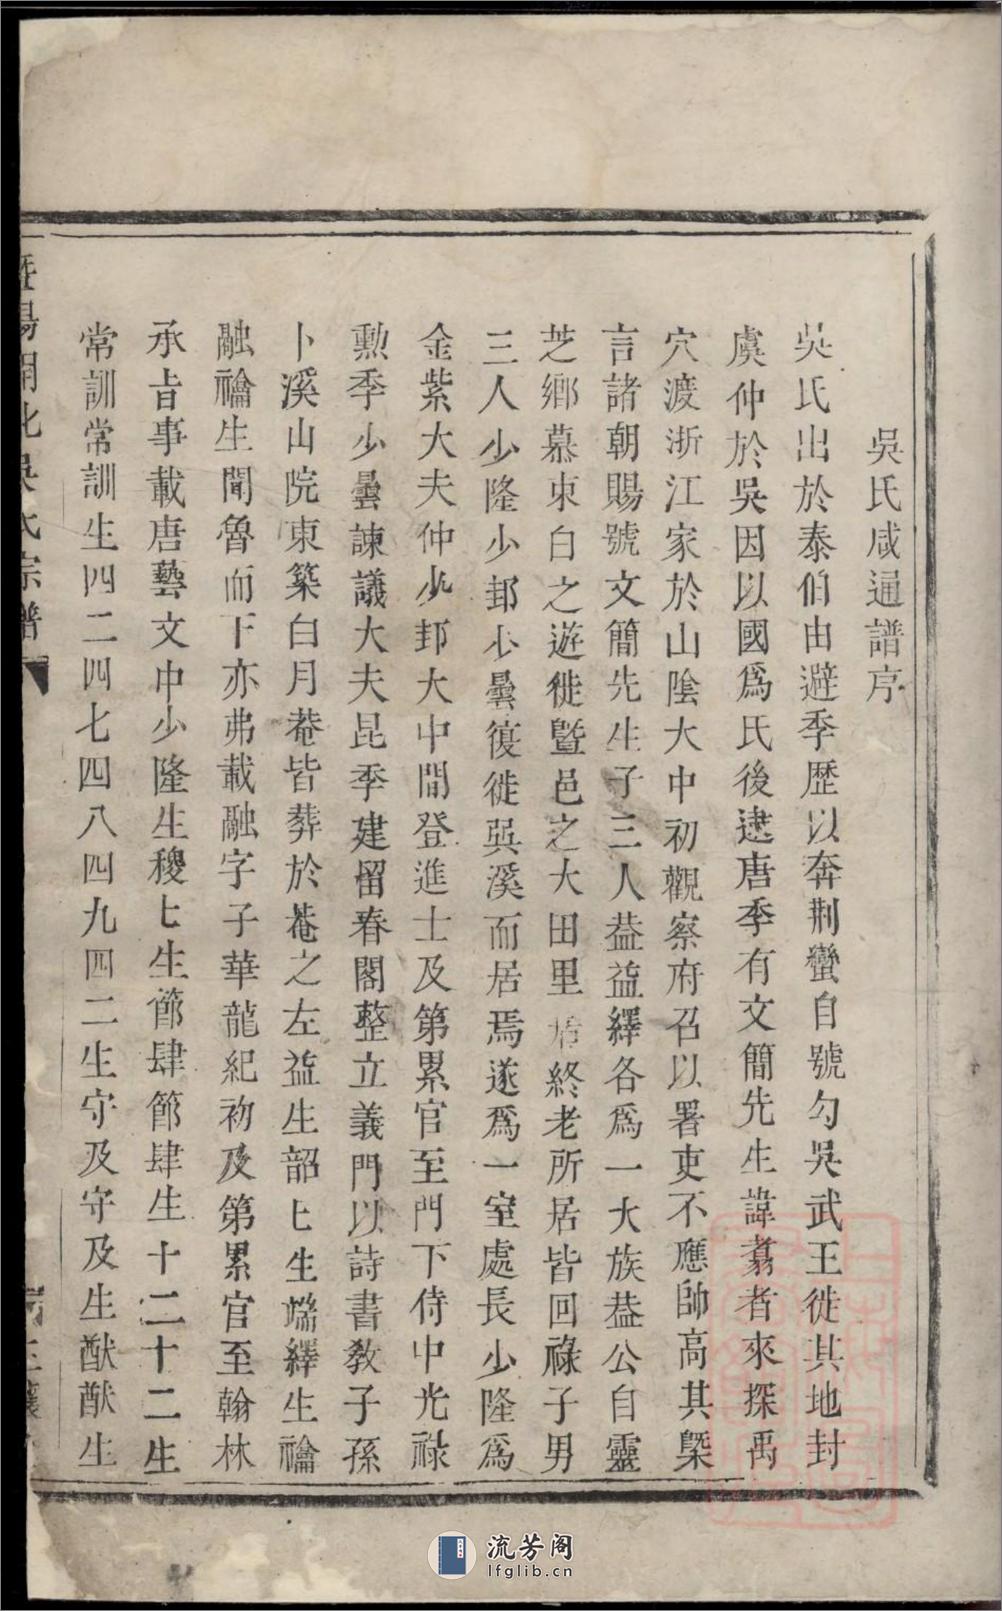 吳氏咸通譜序
吳氏出於泰伯由避季歷以奔荆蠻自號勾吳武王徙其地封
虞仲於吳因以國爲氏後逮唐季有文簡先生諱翥者來探禹
穴渡浙江家於山陰大中初觀察府召以署吏不應帥高其槩
言諸朝賜號文簡先生子三人益益繹各爲一大族益公自靈
芝鄉慕東白之遊徙暨邑之大田里居終老所居皆回祿子男
三人少隆少邽少曇復徙吳溪而居焉遂爲一室處長少隆爲
金紫大夫仲少邽大中間登進士及第累官至門下侍中光祿
勲季少曇諫議大夫昆季建留春閣整立義門以詩書教子孫
卜溪山院東築白月菴皆葬於菴之左益生韶七生端繹生禴
融禴生聞魯而下亦弗載融字子華龍紀初及第累官至翰林
承旨事載唐藝文中少隆生稷七生節肆節肆生十二十二生
常訓常訓生四二四七四八四九四二生守及守及生猷猷生
暨陽開化吳氏宗譜
流芳阁
lfglib.cn